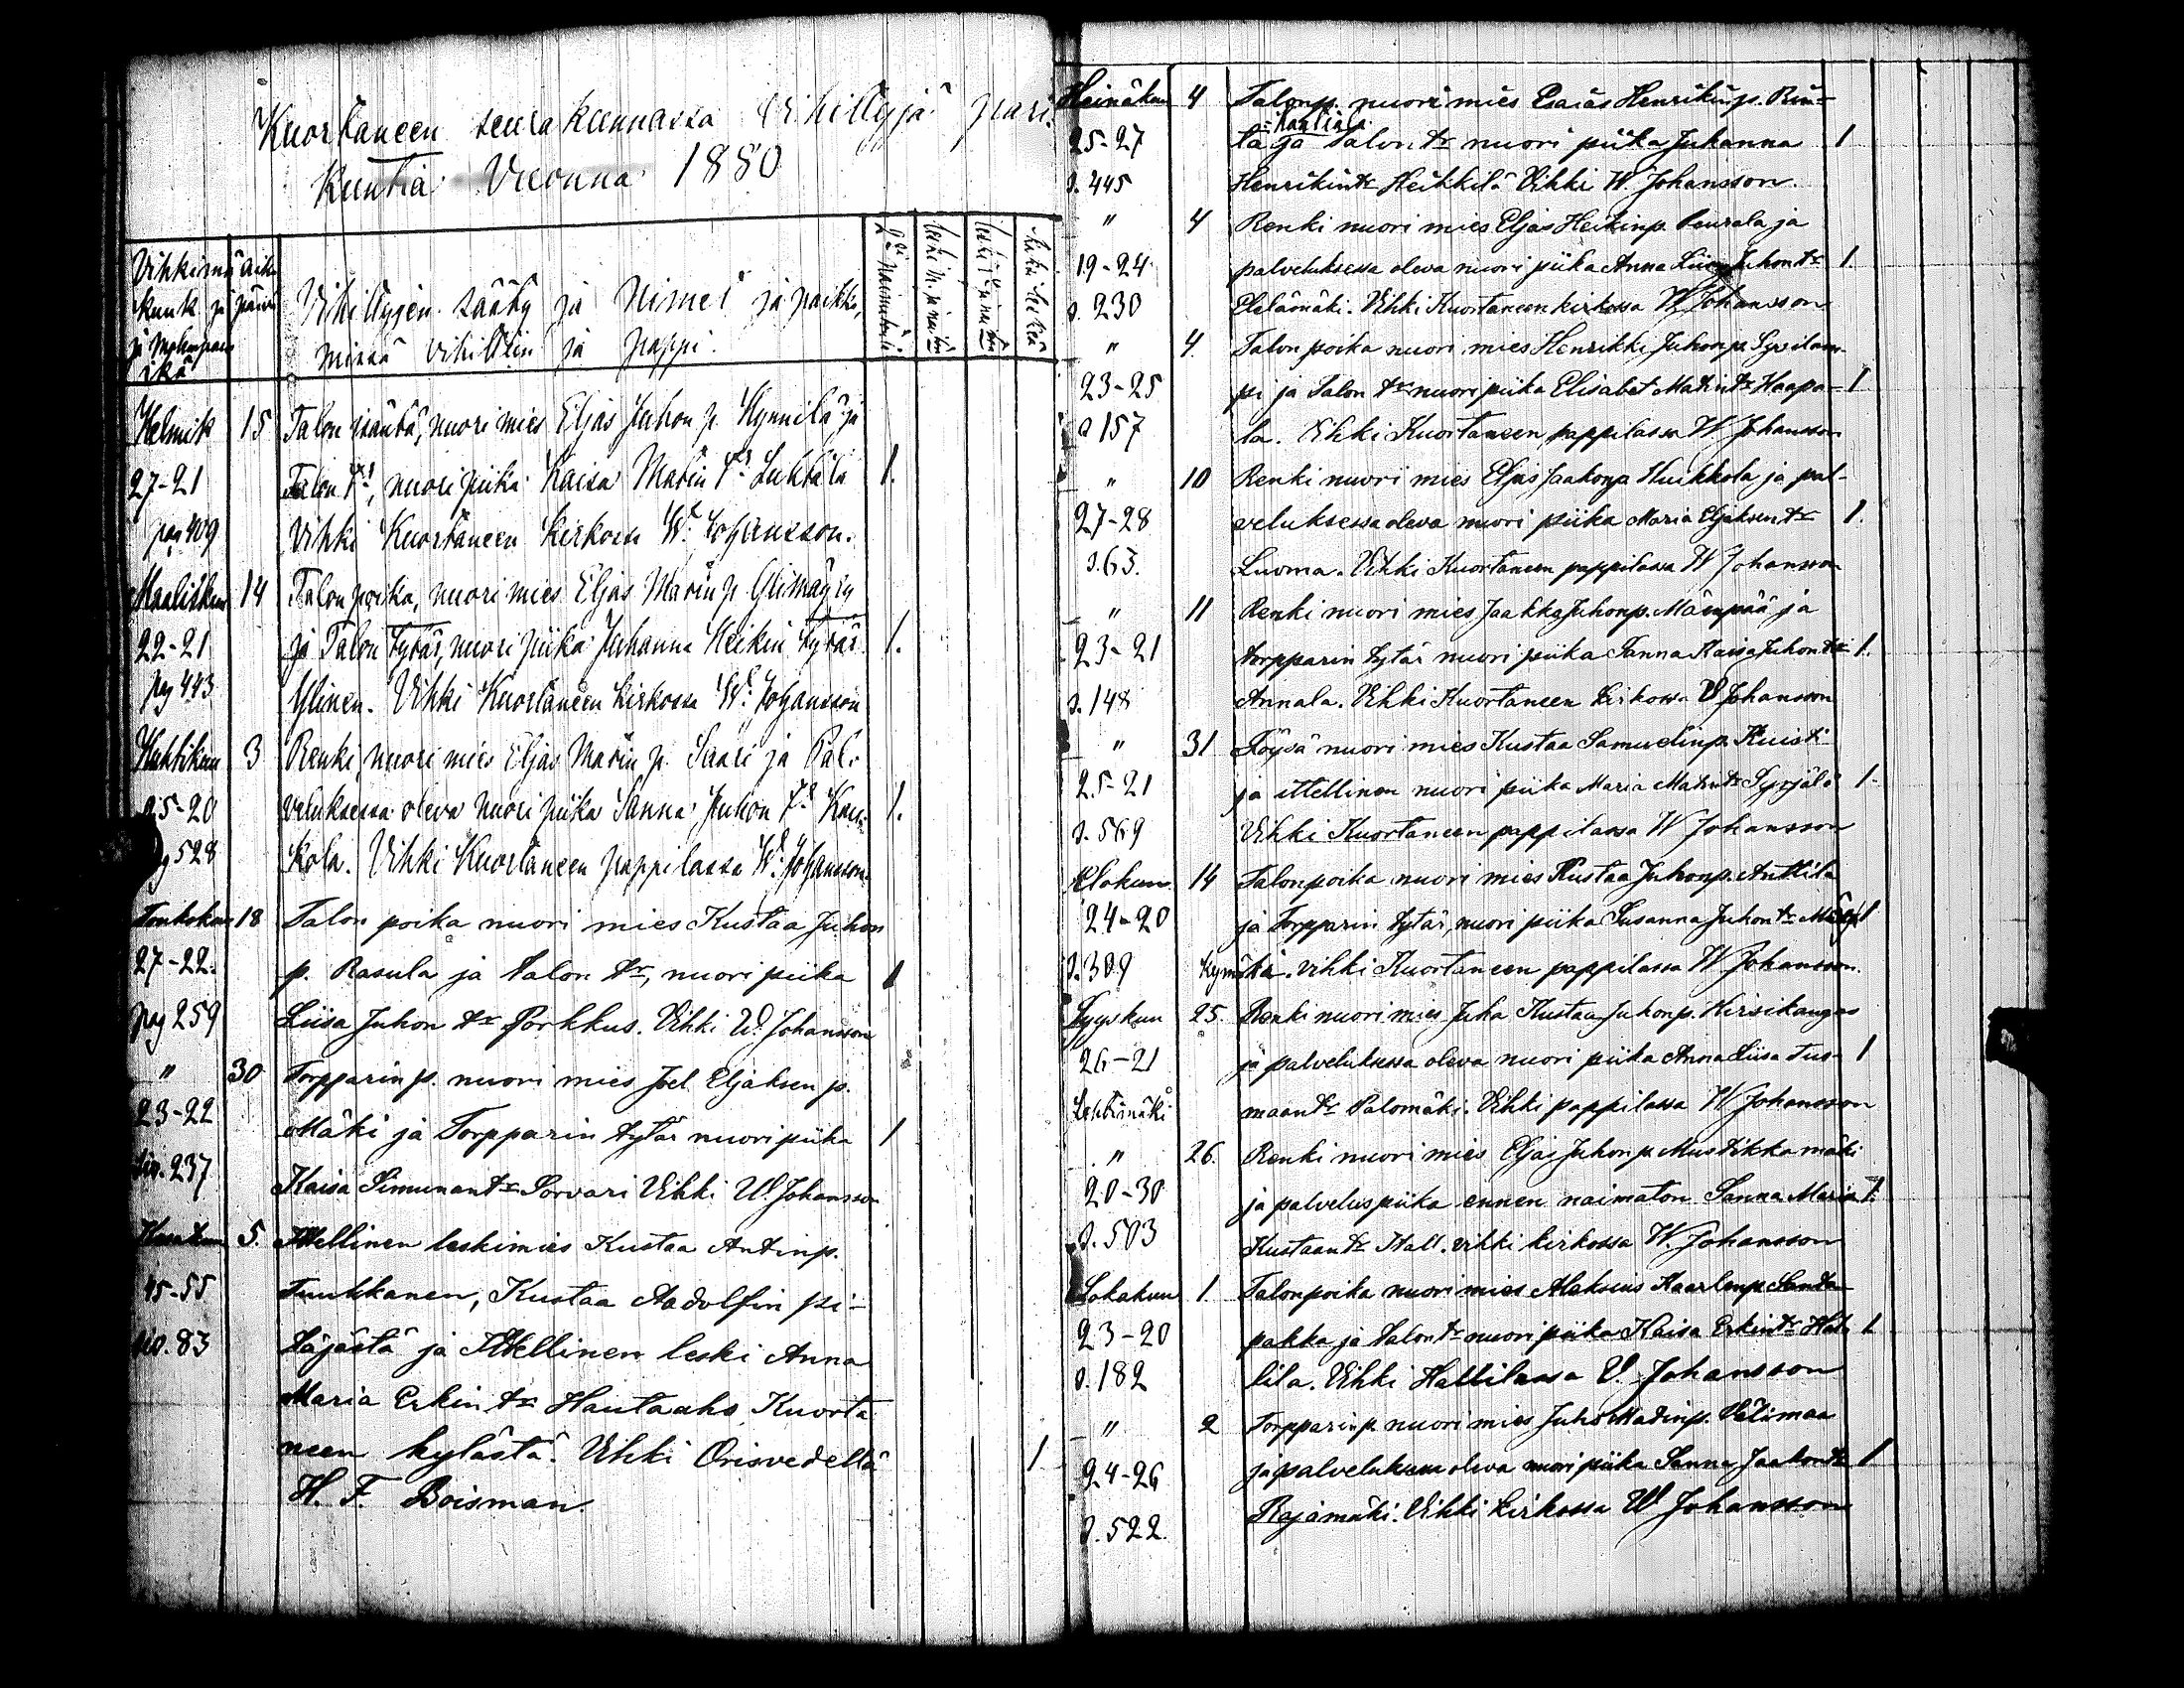 Kuortaneen seurakunnassa Vihillyjä pari
Kuntia Vuonna 1880
Vihkimä aika
kuuk. ja päivä
ikä
Vihillyjen sääty ja Nimet ja paikka,
missä vihittiin ja pappi.
Helmik 15 Talon isäntä, nuori mies Eljas Juhon p. Kynnilä ja
27-21 Talon tr, nuori piika Kaisa Matin tr Luhtala 1.
pag 409 Vihki Kuortaneen Kirkossa W. Johansson.
Maaliskuu 14 Talon poika, nuori mies Eljas Matin p.
22-21 ja Talon tytär, nuori piika Juhanna Heikin tytär 1.
pag 443 Ylinen. Vihki Kuortaneen Kirkossa W. Johansson
Huhtikuu 3 Renki, nuori mies Eljas Matin p. Saari ja Pal-
25-20 veluksessa oleva nuori piika Sanna Juhon tr Kau- 1.
pag 528 kola. Vihki Kuortaneen pappilassa W. Johansson.
Toukokuu 18 Talon poika nuori mies Kustaa Juhon
27-22. p. Rasula ja talon tr, nuori piika 1
pag 259 Liisa Juhon tr Porkkus. Vihki W. Johansson
" 30 Torpparin p. nuori mies Joel Eljaksen p.
23-22 Mäki ja Torpparin tytär nuori piika 1
siv. 237 Kaisa Simunan tr Porvari Vihki W. Johansson
Kesäkuu 5. Ittellinen leskimies Kustaa Antinp.
45-55 Tuukkanen, Kustaa Aadolfin pi-
sio. 83 täjästä ja Ittellinen leski Anna
Maria Erkin tr Hautaaho Kuorta
neen kylästä. Vihki Orisvedellä 1
H. F. Boisman.
Heinäkuu 4 Talonp. nuori mies Esaias Henrikinp. Rin-
=kaliala
25-27 ta ja talon tr nuori piika Juhanna 1
s. 445 Henrikin tr Heikkilä Vihki W. Johansson.
" 4 Renki nuori mies Eljas Heikinp. Peurala ja
19-24 palveluksessa oleva nuori piika Anna Liisa Juhon tr 1.
s. 230 Etelämäki. Vihki Kuortaneen kirkossa W Johansson
" 4. Talon poika nuori mies Henrikki Juhonp. Sysilam-
23-25 pi ja Talon tr nuori piika Elisabet Matin tr Haapa- 1
s 157 la. Vihki Kuortaneen pappilassa W. Johansson
" 10 Renki nuori mies Eljas Jaakonp Huikkola ja pal-
27-28 veluksessa oleva nuori piika Maria Eljaksen tr 1.
s. 63. Luoma. Vihki Kuortaneen pappilassa W Johansson
" 11 Renki nuori mies Jaakko Juhonp. Mäenpää ja
23-21 torpparin tytär nuori piika Sanna Kaisa Juhon tr 1.
s. 148 Annala. Vihki Kuortaneen kirkossa W Johansson
" 31 Töysä nuori mies Kustaa Samuelinp. Kuisti
25-21 ja ittellinen nuori piika Maria Matin tr Syrjälä 1.
s. 569 Vihki Kuortaneen pappilassa W Johansson
Elokuu 14 Talonpoika nuori mies Kustaa Juhonp. Anttila
24-20 ja Torpparin tytär, nuori piika Susanna Juhon tr 1
s. 309 kymäki. vihki Kuortaneen pappilassa W Johansson.
Syyskuu 25. Renki nuori mies Juha Kustaa Juhonp. Kirsikangas
26-21 ja palveluksessa oleva nuori piika Anna Liisa Tuo- 1
Lehtimäki maan tr Palomäki. Vihki pappilassa W Johansson
" 26. Renki nuori mies Eljas Juhon p. Mustikkamäki
20-30 ja palveluspiika ennen naimaton Sanna Maria 1.
s. 503 Kustaan tr Hall. vihki kirkossa W. Johansson
Lokakuu 1. Talonpoika nuori mies Aleksius Kaarlenp Santa
23-20 pakka ja talon tr nuori piika Kaisa Erkin tr Hal- 1.
s. 182 lila. Vihki Hallilassa W Johansson
" 2 Torpparinp. nuori mies Juho Matinp. Välimaa
24-26 ja palveluksessa oleva nuori piika Sanna Jaakon tr 1
s. 522. Rajamäki. Vihki kirkossa W Johansson